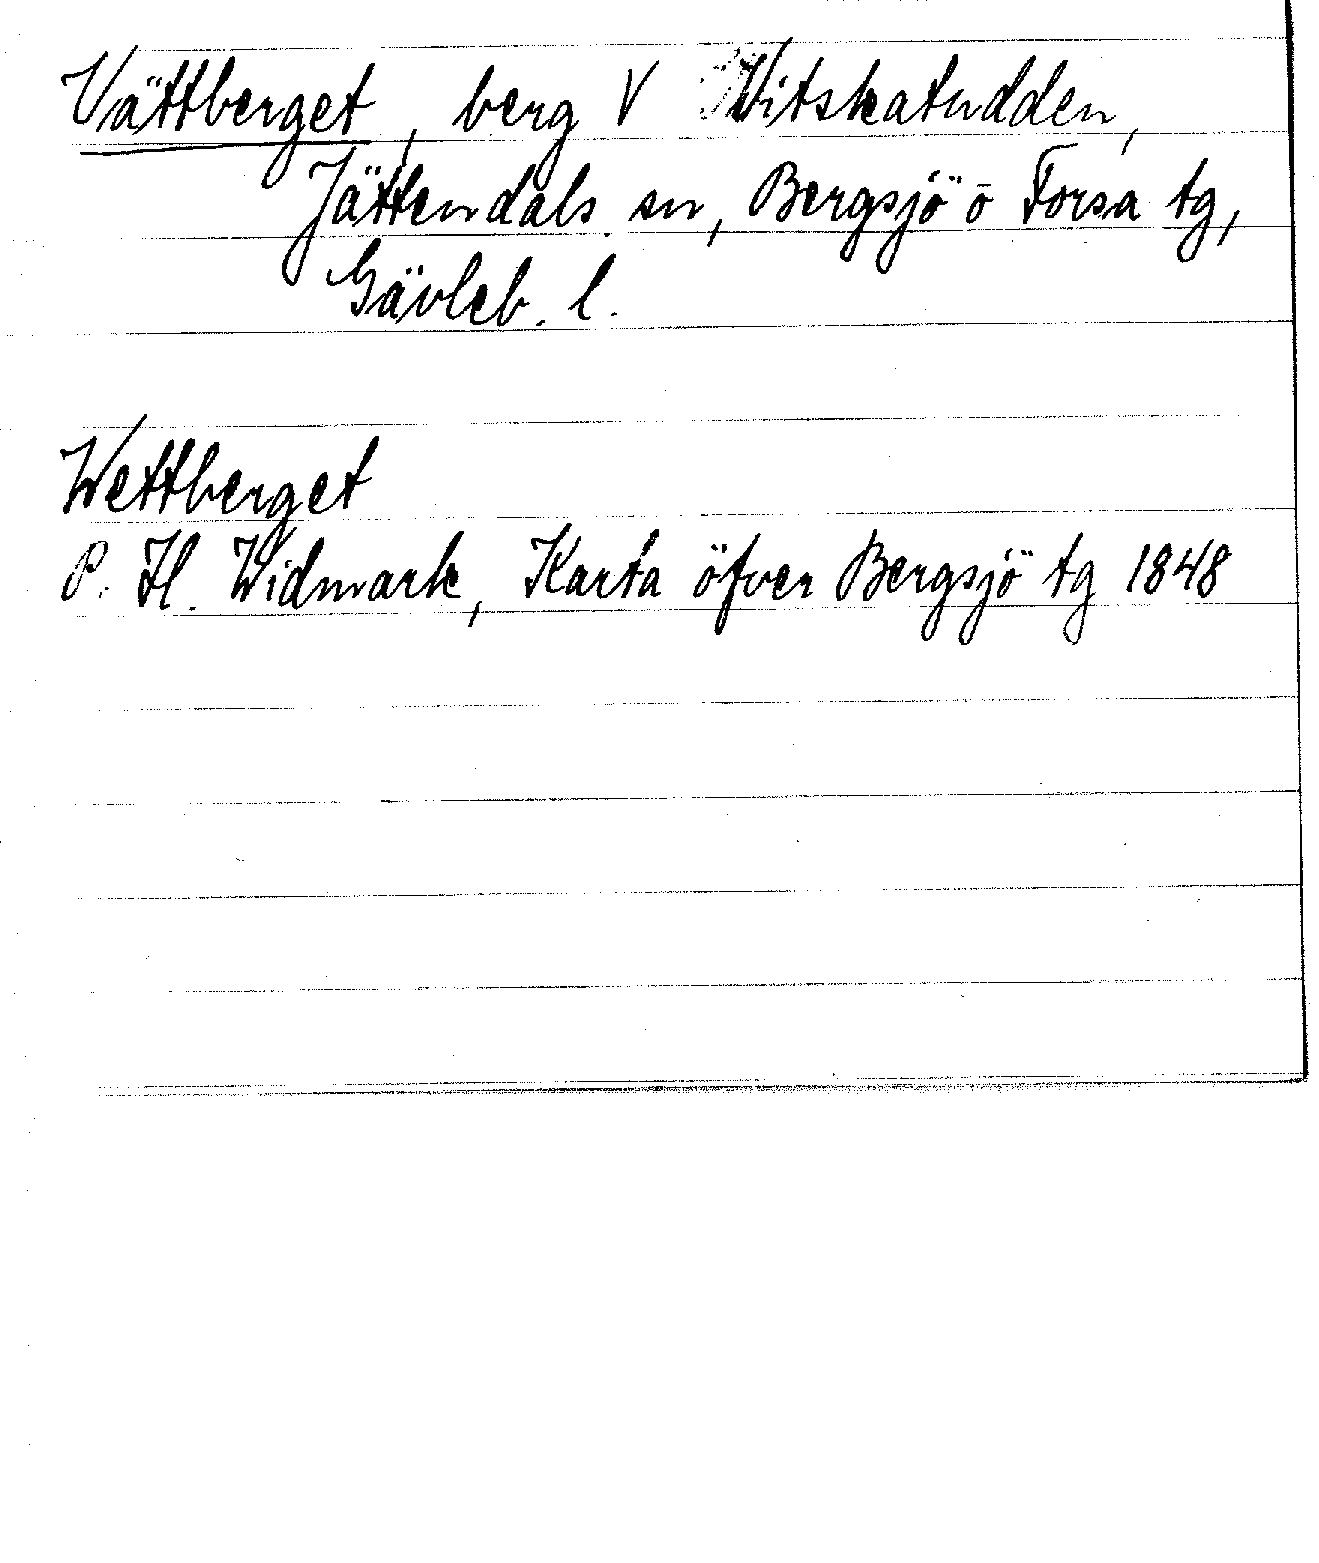 Vättberget, berg V Vitskatudden,
Jättendals sn, Bergsjö o Forsa tg,
Gävleb. l.
Wettberget
P. H. Widmark, Karta öfver Bergsjö tg 1848